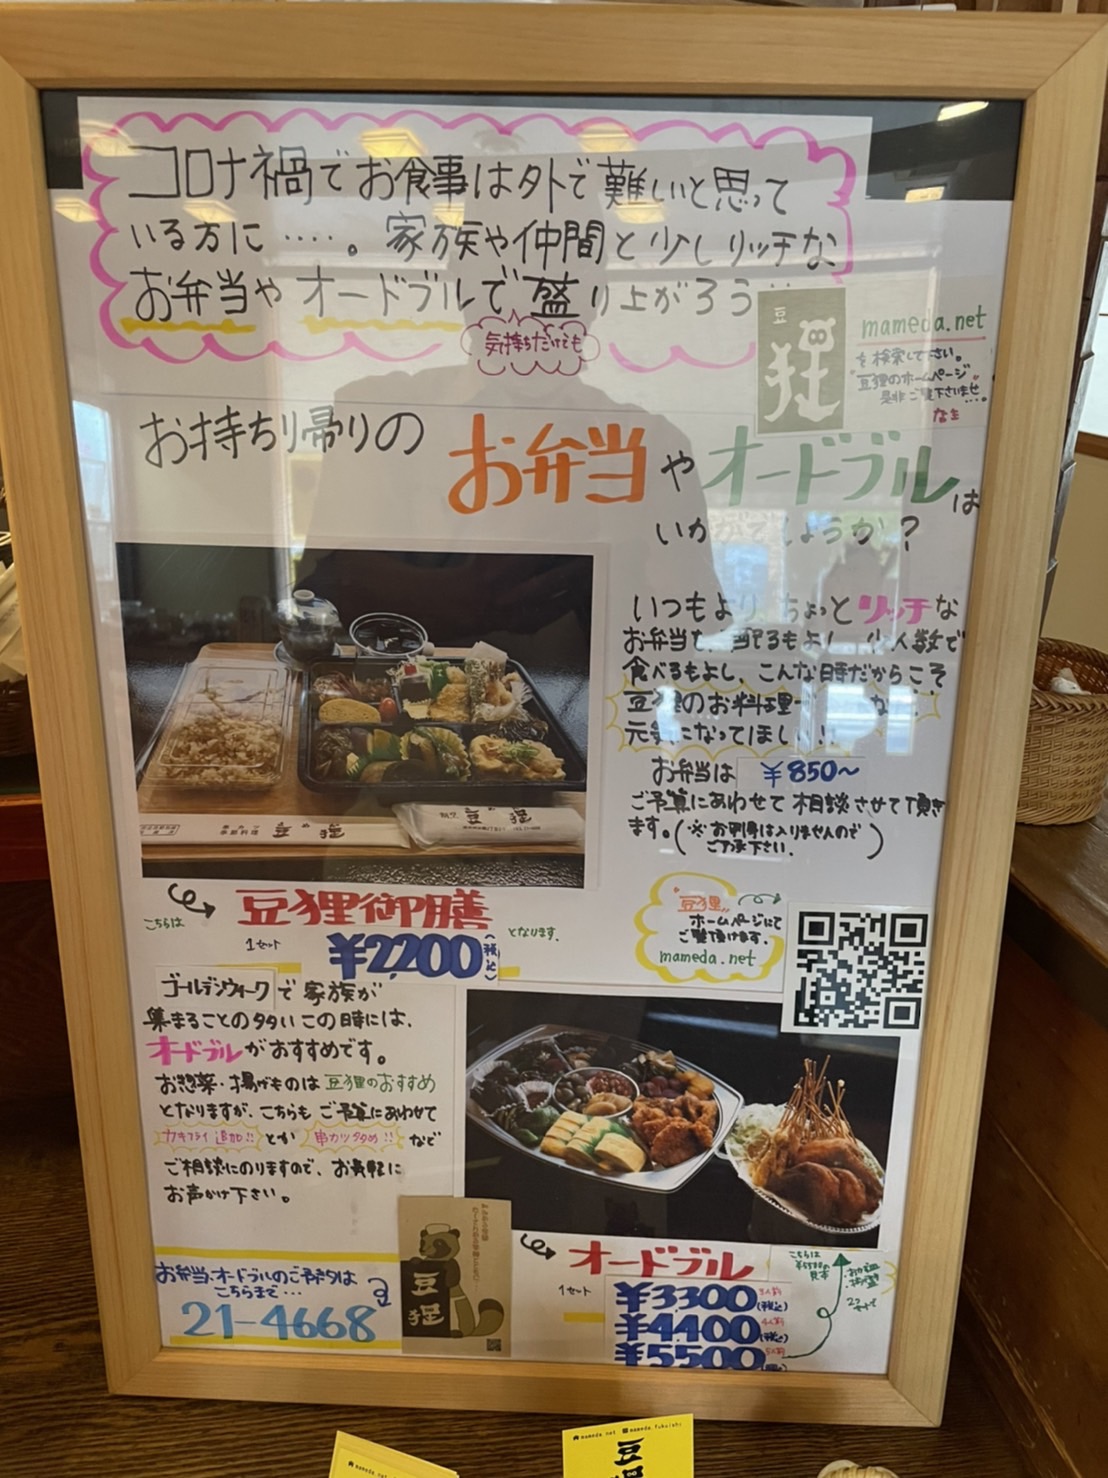 コロナ禍でお食事は外で難しいと思って
いる方に ‥‥。家族や仲間と少しリッチな
お弁当やオードブルで盛り上がろう‥
気持ちだけでも
豆狸
mameda.net
を検索して下さい。
"豆狸のホームページ"
是非ご覧下さいませ...
お持ち帰りの
お弁当やオードブルは
いか
しょうか?
いつもより ちょっとリッチな
お弁当を 配るもよし 少人数で
食べるもよし、こんな時だからこそ
豆狸のお料理
元気になってほしい!!
お弁当は ¥850~
ご予算にあわせて相談させて頂き
ます。(※お刺身は入りませんので
ご了承下さい。)
豆狸
こちらは 豆狸御膳
1セット ¥2,200(税込) となります。
"豆狸"
ホームページにて
ご覧頂けます。
mameda.net
ゴールデンウィークで家族が
集まることの多いこの時には、
オードブルがおすすめです。
お惣菜・揚げものは豆狸のおすすめ
となりますが、こちらもご予算にあわせて
カキフライ追加!!とか 串カツ多め!!など
ご相談にのりますので、お気軽に
お声かけ下さい。
お弁当、オードブルのご予約は
こちらまで…
21-4668
豆狸
オードブル
1セット
¥3300(税込) 3人前
¥4400(税込) 4人前
¥5500 5人前
こちらは
¥5500の
見本
mameda.net
mameda.net mameda.fukuishi